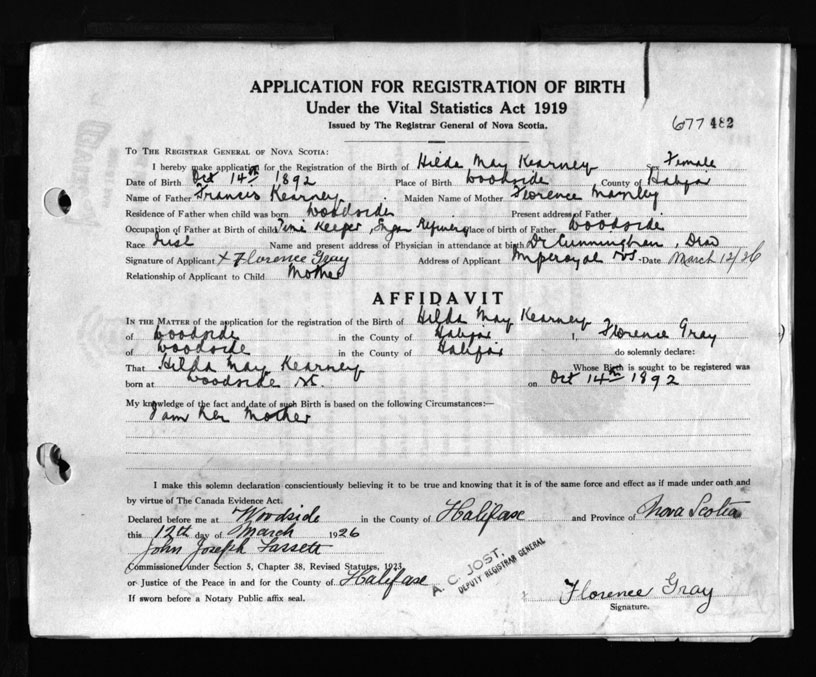 APPLICATION FOR REGISTRATION OF BIRTH
Under the Vital Statistics Act 1919
Issued by The Registrar General of Nova Scotia.
677 482
TO THE REGISTRAR GENERAL OF NOVA SCOTIA:
I hereby make application for the Registration of the Birth of Hilda May Kearney Sex Female
Date of Birth Oct 14th 1892 Place of Birth Woodside County of Halifax
Name of Father Francis Kearney Maiden Name of Mother Florence
Residence of Father when child was born Woodside Present address of Father
Occupation of Father at Birth of child Time Keeper, Sugar Refinery place of birth of Father Woodside
Race Irish Name and present address of Physician in attendance at birth Dr Cunningham,
Signature of Applicant x Florence Gray Address of Applicant Imperoyal NS. Date March 12/26
Relationship of Applicant to Child Mother
AFFIDAVIT
IN THE MATTER of the application for the registration of the Birth of Hilda May Kearney
of Woodside in the County of Halifax I, Florence Gray
of Woodside in the County of Halifax do solemnly declare:
That Hilda May Kearney Whose Birth is sought to be registered was
born at Woodside NS. on Oct 14th 1892
My knowledge of the fact and date of such Birth is based on the following Circumstances:—
I am her Mother
I make this solemn declaration conscientiously believing it to be true and knowing that it is of the same force and effect as if made under oath and
by virtue of The Canada Evidence Act.
Declared before me at Woodside in the County of Halifax and Province of Nova Scotia
this 12th day of March 1926
John Joseph
Commissioner under Section 5, Chapter 38, Revised Statutes, 1923,
or Justice of the Peace in and for the County of Halifax
A. C. JOST,
DEPUTY REGISTRAR GENERAL
If sworn before a Notary Public affix seal.
Florence Gray
Signature.